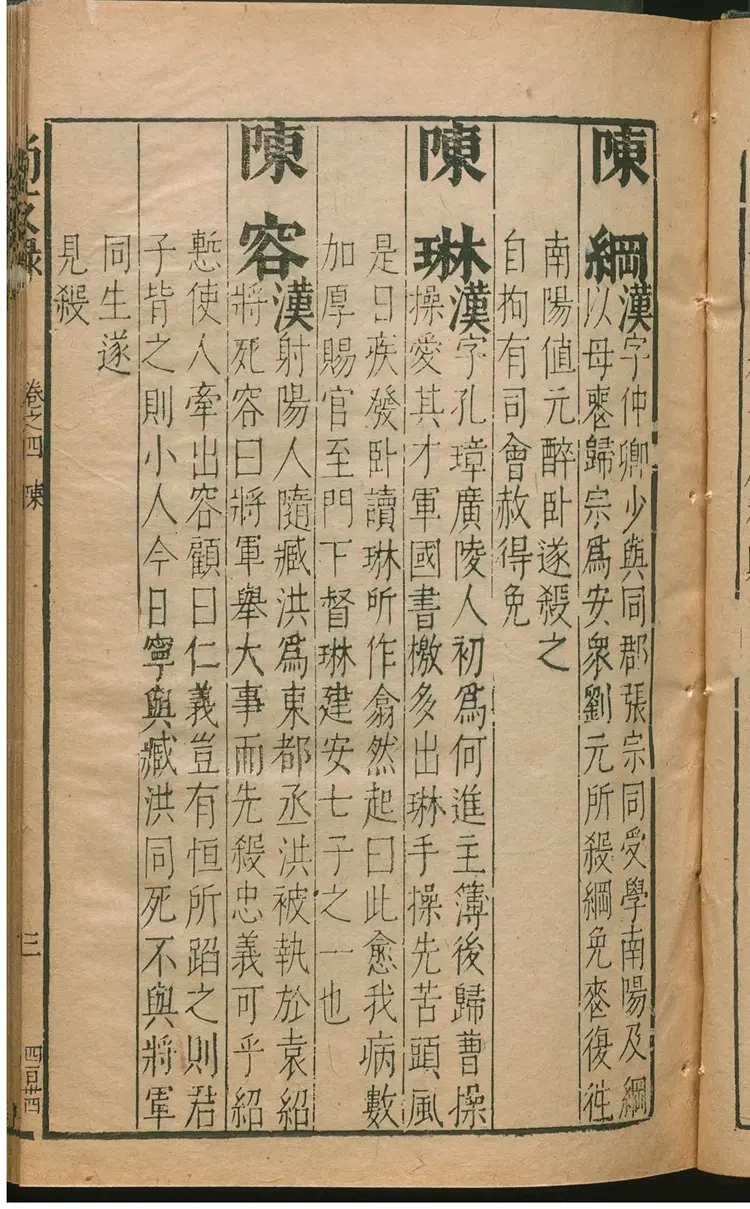 陳綱漢字仲卿少與同郡張宗同受學南陽及綱
以母喪歸宗爲安衆劉元所殺綱免喪復徃
南陽值元醉卧遂殺之
自拘有司會赦得免
陳琳漢字孔璋廣陵人初爲何進主簿後歸曹操
操愛其才軍國書檄多出琳手操先苦頭風
是日疾發卧讀琳所作翕然起曰此愈我病數
加厚賜官至門下督琳建安七子之一也
陳容漢射陽人隨臧洪爲東都丞洪被執於袁紹
將死容曰將軍舉大事而先殺忠義可乎紹
慙使人牽出容顧曰仁義豈有恒所蹈之則君
子背之則小人今日寧與臧洪同死不與將軍
同生遂
見殺
尚友錄 卷之四 陳 三